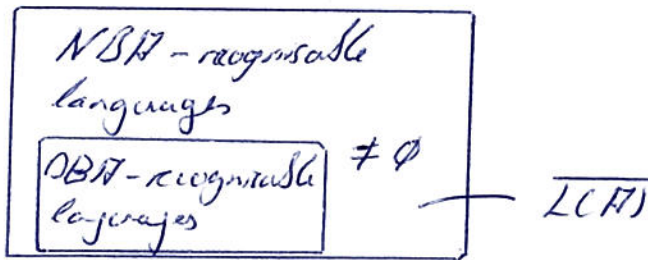 NBA-recognisable
languages
DBA-recognisable
languages
≠ ∅
L(A)